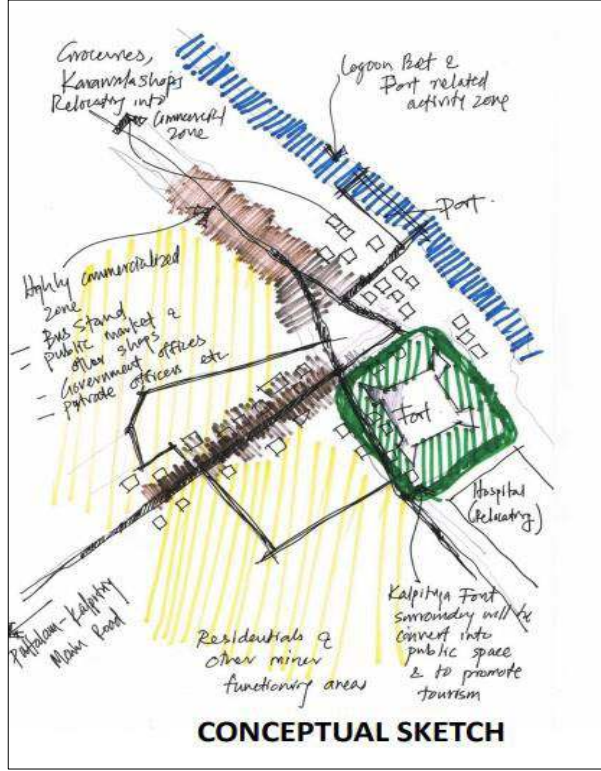 Groceries,
Karawala shops
Relocating into
Commercial
zone
Lagoon Belt &
Port related
activity zone
Port.
Highly commercialized
zone
— Bus Stand
— public market &
other shops
— Government offices
— private officers etc
Fort
Hospital
(Relocating)
Kalpitiya Font
surrounding will be
convert into
public space
& to promote
tourism
Puttalam-Kalpitiy
Main Road
Residentials &
other miner
functioning areas
CONCEPTUAL SKETCH